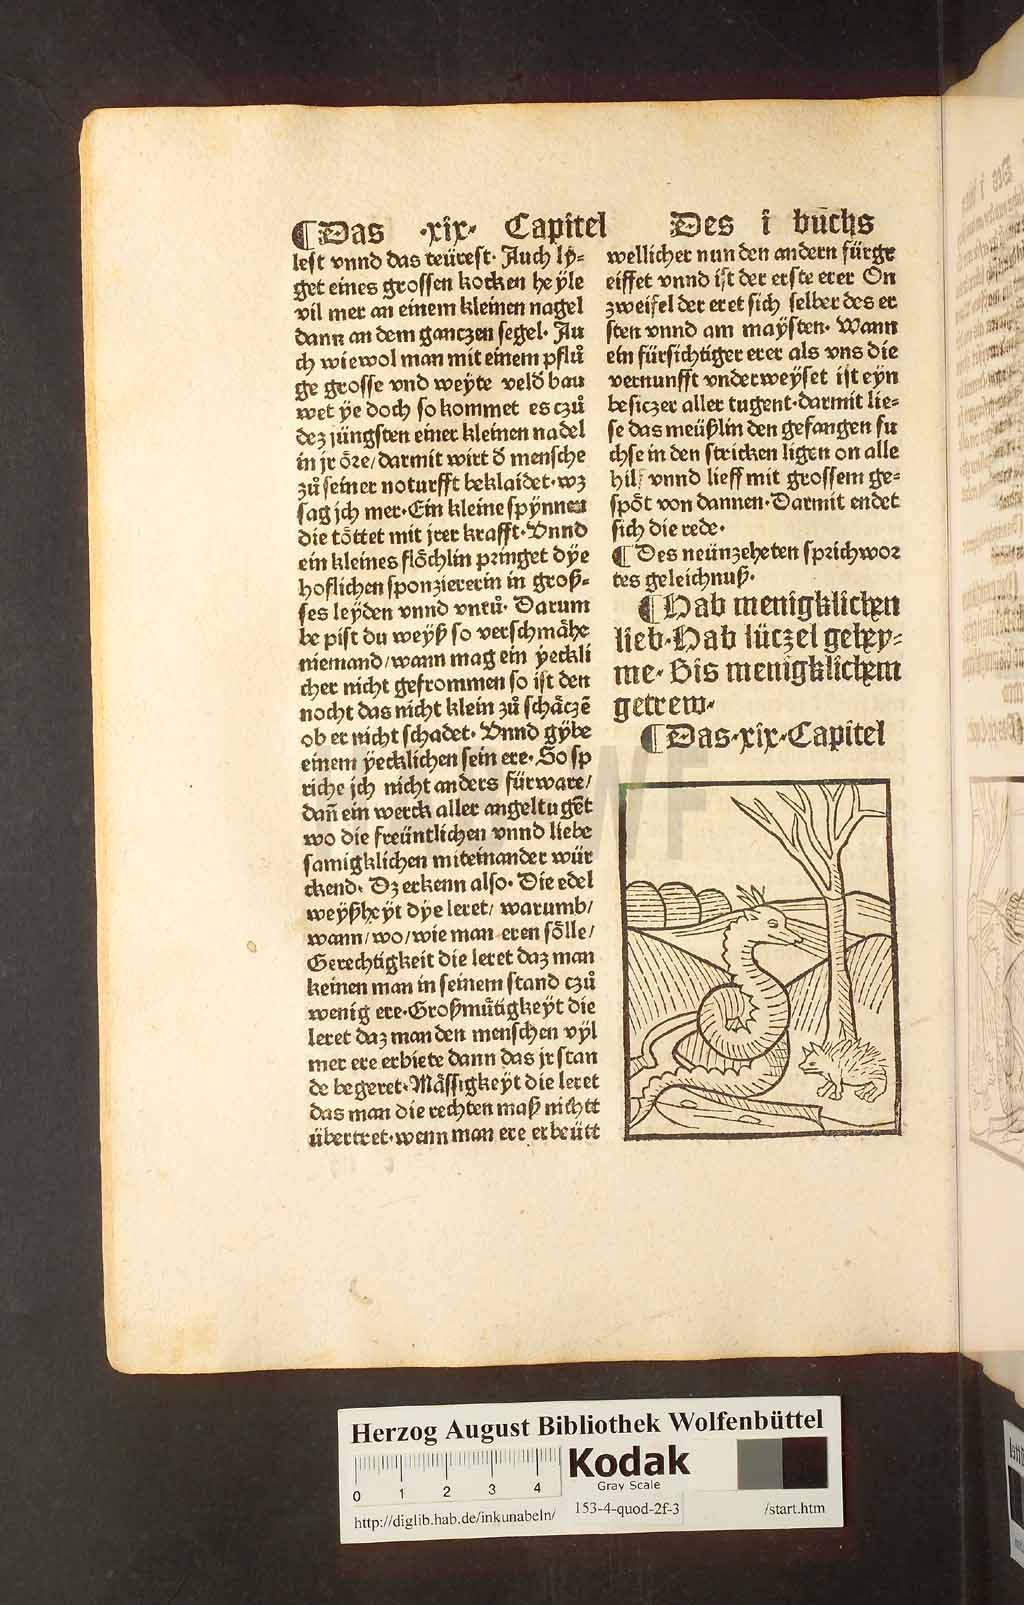 ¶Das ·xix· Capitel Des i buchs
lest vnnd das teürest· Auch lÿ=
get eines grossen kocken heÿle
vil mer an einem kleinen nagel
dann an dem ganczen segel· Au
ch wiewol man mit einem pflů
ge grosse vnd weÿte veld bau
wet ÿe doch so kommet es czů
dez jüngsten einer kleinen nadel
in jr öre/darmit wirt d mensche
zů seiner noturfft beklaidet·wz
sag jch mer·Ein kleine spÿnnen
die töttet mit jrer krafft·Vnnd
ein kleines flöchlin pringet dÿe
hoflichen sponziererin in groß=
ses leÿden vnnd vntů· Darum
be pist du weÿß so verschmähe
niemand/wann mag ein ÿeckli
cher nicht gefrommen so ist den
nocht das nicht klein zů schäczē
ob er nicht schadet· Vnnd gÿbe
einem ÿecklichen sein ere· So sp
riche jch nicht anders fürware/
dañ ein werck aller angeltugēt
wo die freüntlichen vnnd liebe
samigklichen miteinander wür
ckend· Dz erkenn also· Die edel
weÿßheÿt dÿe leret/ warumb/
wann/wo/wie man eren sölle/
Gerechtigkeit die leret daz man
keinen man in seinem stand czů
wenig ere·Großmütigkeÿt die
leret daz man den menschen vÿl
mer ere erbiete dann das jr stan
de begeret·Mässigkeÿt die leret
das man die rechten maß nichtt
übertret·wenn man ere erbeütt
wellicher nun den andern fürgr
eiffet vnnd ist der erste erer On
zweifel der eret sich selber des er
sten vnnd am maÿsten· Wann
ein fürsichtiger erer als vns die
vernunfft vnderweÿset ist eÿn
besiczer aller tugent·darmit lie=
se das meüßlin den gefangen fu
chse in den stricken ligen on alle
hilf vnnd lieff mit grossem ge=
spöt von dannen·Darmit endet
sich die rede·
¶Des neünzeheten sprichwor
tes geleichnuß·
¶Hab menigklichen
lieb·Hab lüczel gehey=
me· Bis menigklichem
getrew·
¶Das·xix·Capitel
Herzog August Bibliothek Wolfenbüttel
0 1 2 3 4
Kodak
Gray Scale
http://diglib.hab.de/inkunabeln/ 153-4-quod-2f-3 /start.htm